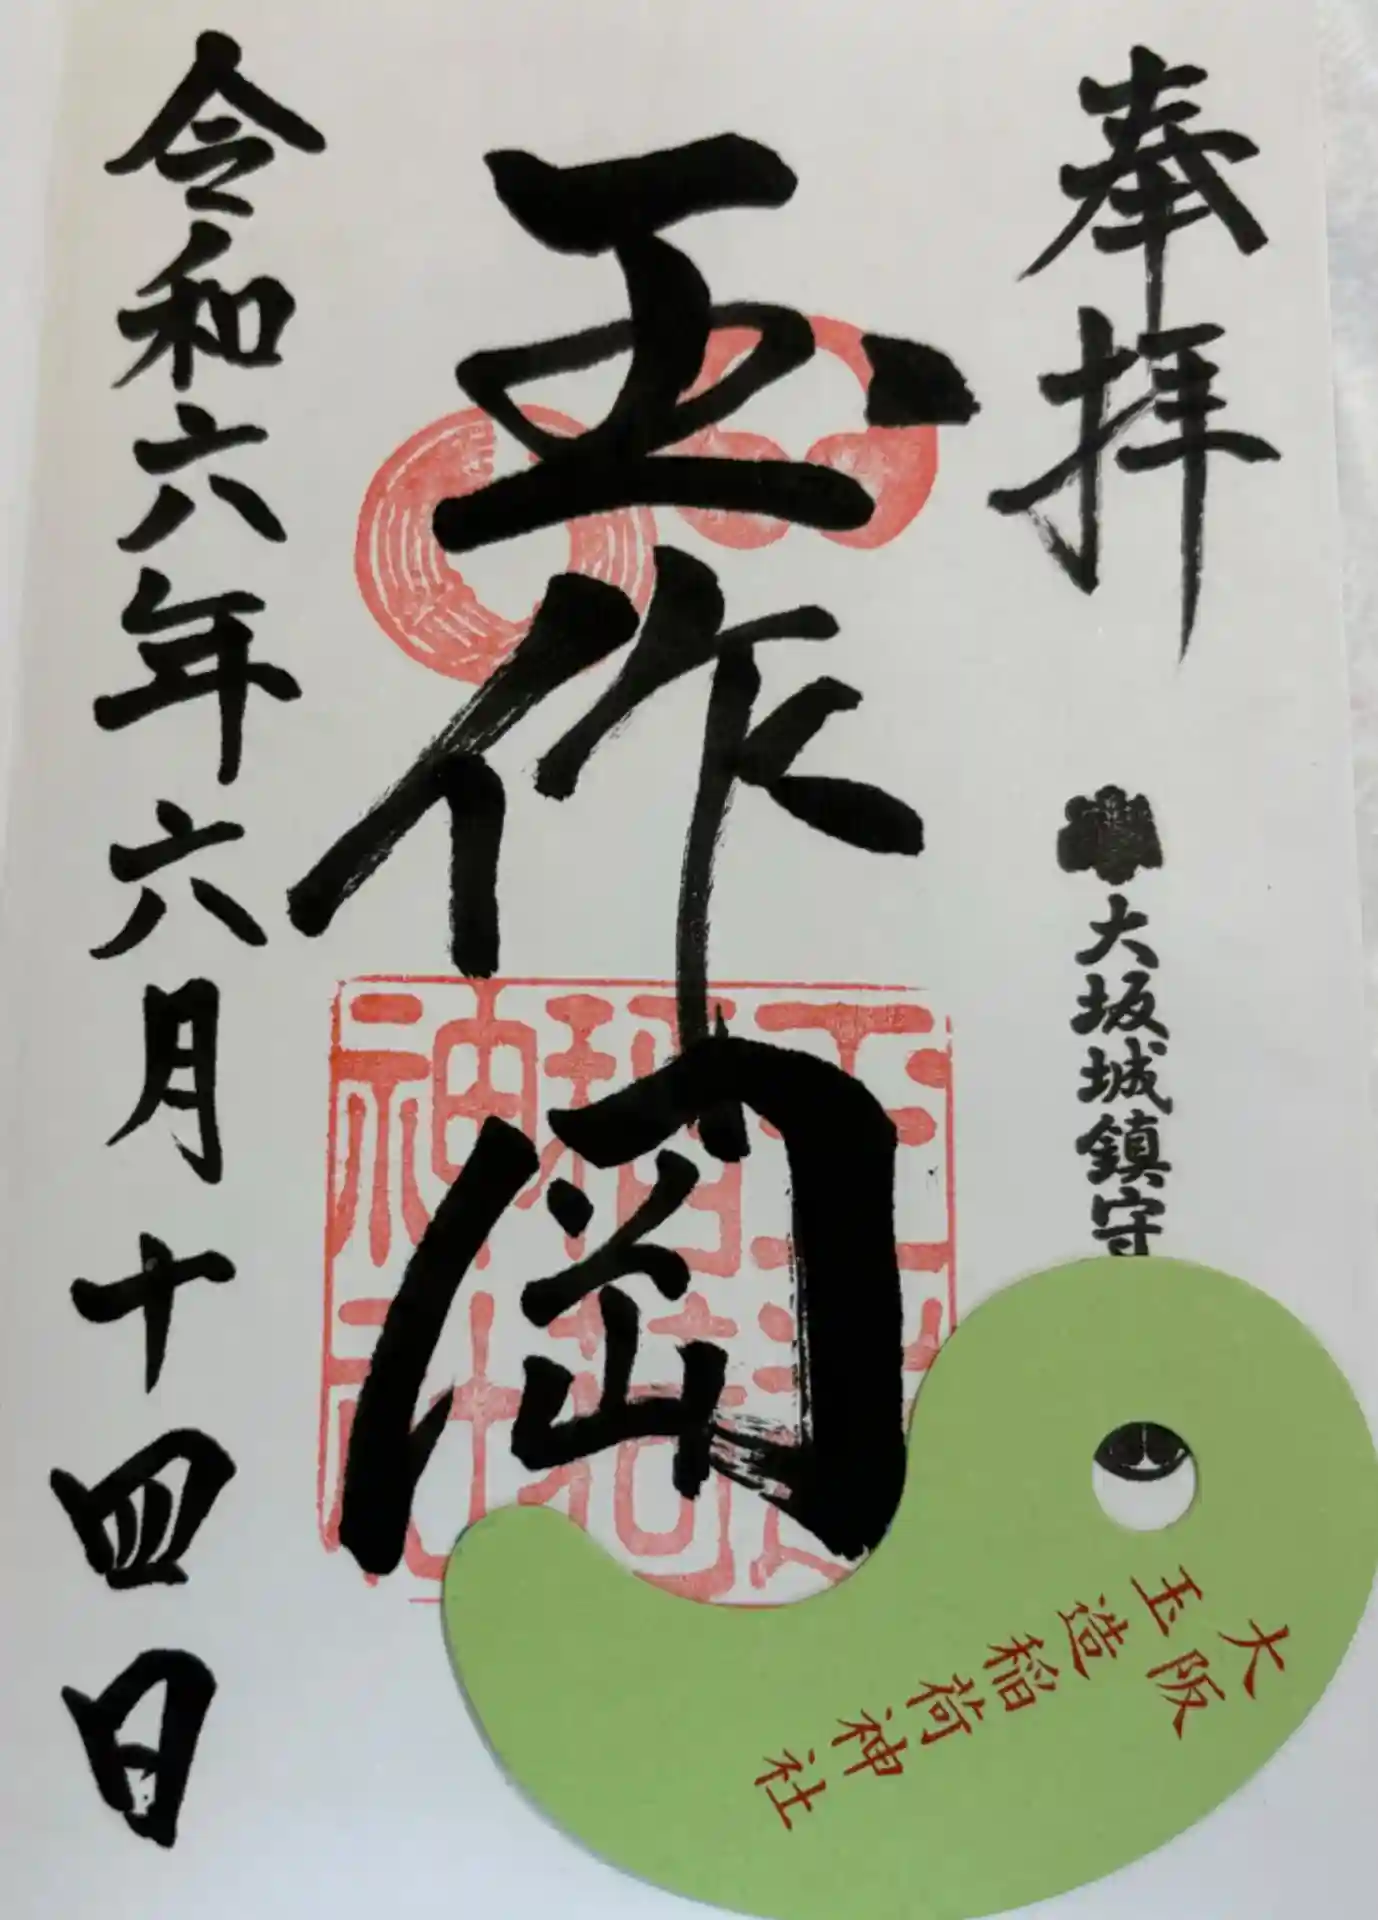 奉拝
大坂城鎮守
玉作岡
玉造
稲荷
神社
令和六年六月十四日
大阪
玉造稲荷神社